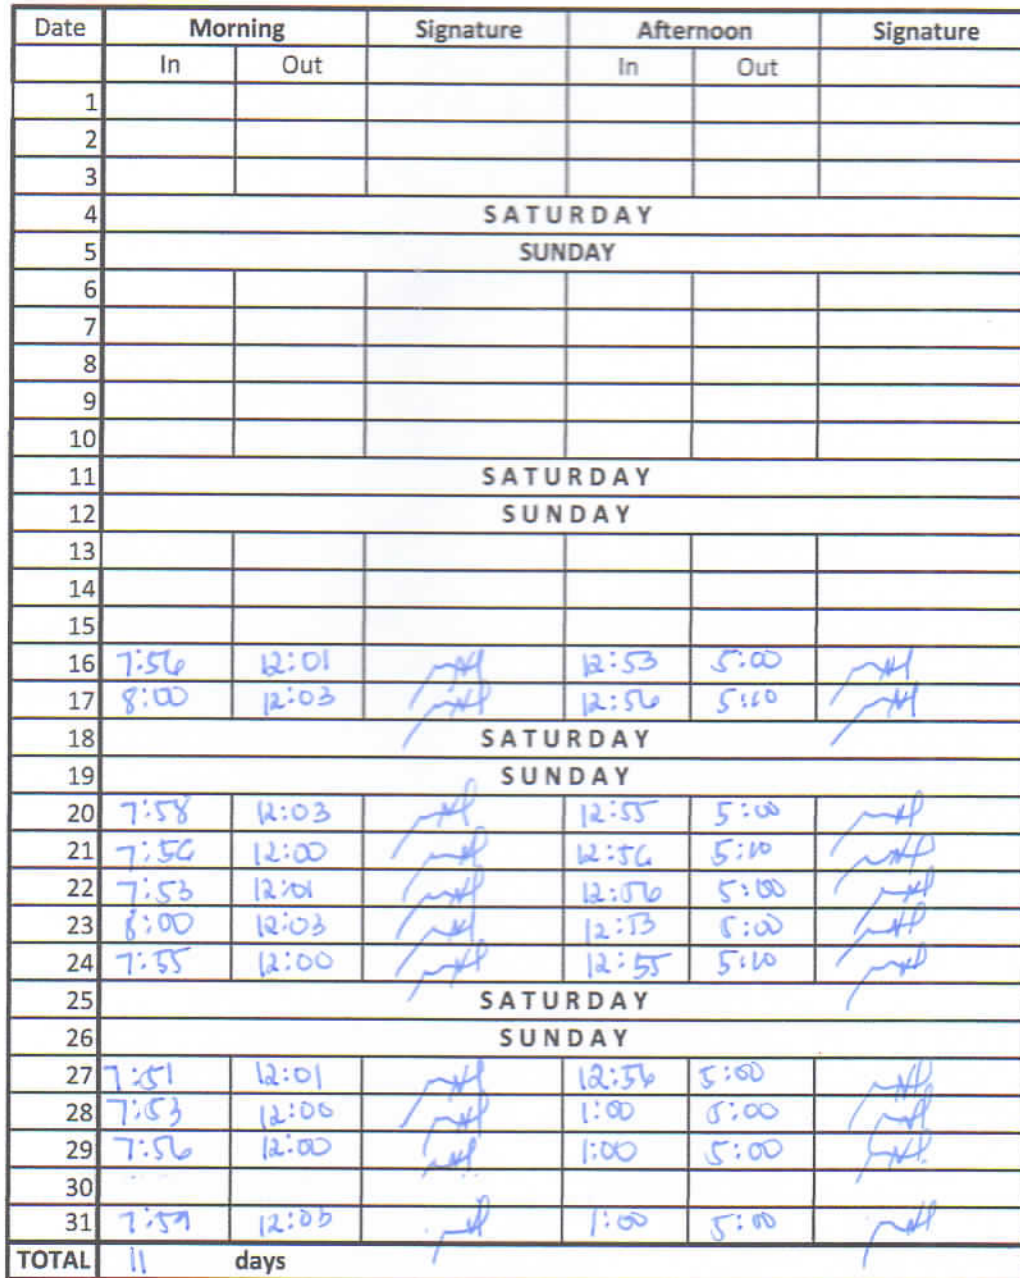 Date Morning Signature Afternoon Signature
In Out In Out
1
2
3
4 SATURDAY
5 SUNDAY
6
7
8
9
10
11 SATURDAY
12 SUNDAY
13
14
15
16 7:56 12:01 12:53 5:00
17 8:00 12:03 12:56 5:10
18 SATURDAY
19 SUNDAY
20 7:58 12:03 12:55 5:00
21 7:56 12:00 12:56 5:10
22 7:53 12:01 12:56 5:00
23 8:00 12:03 12:53 5:00
24 7:55 12:00 12:55 5:10
25 SATURDAY
26 SUNDAY
27 7:51 12:01 12:56 5:00
28 7:53 12:00 1:00 5:00
29 7:56 12:00 1:00 5:00
30
31 7:59 1:00 5:00
TOTAL 11 days